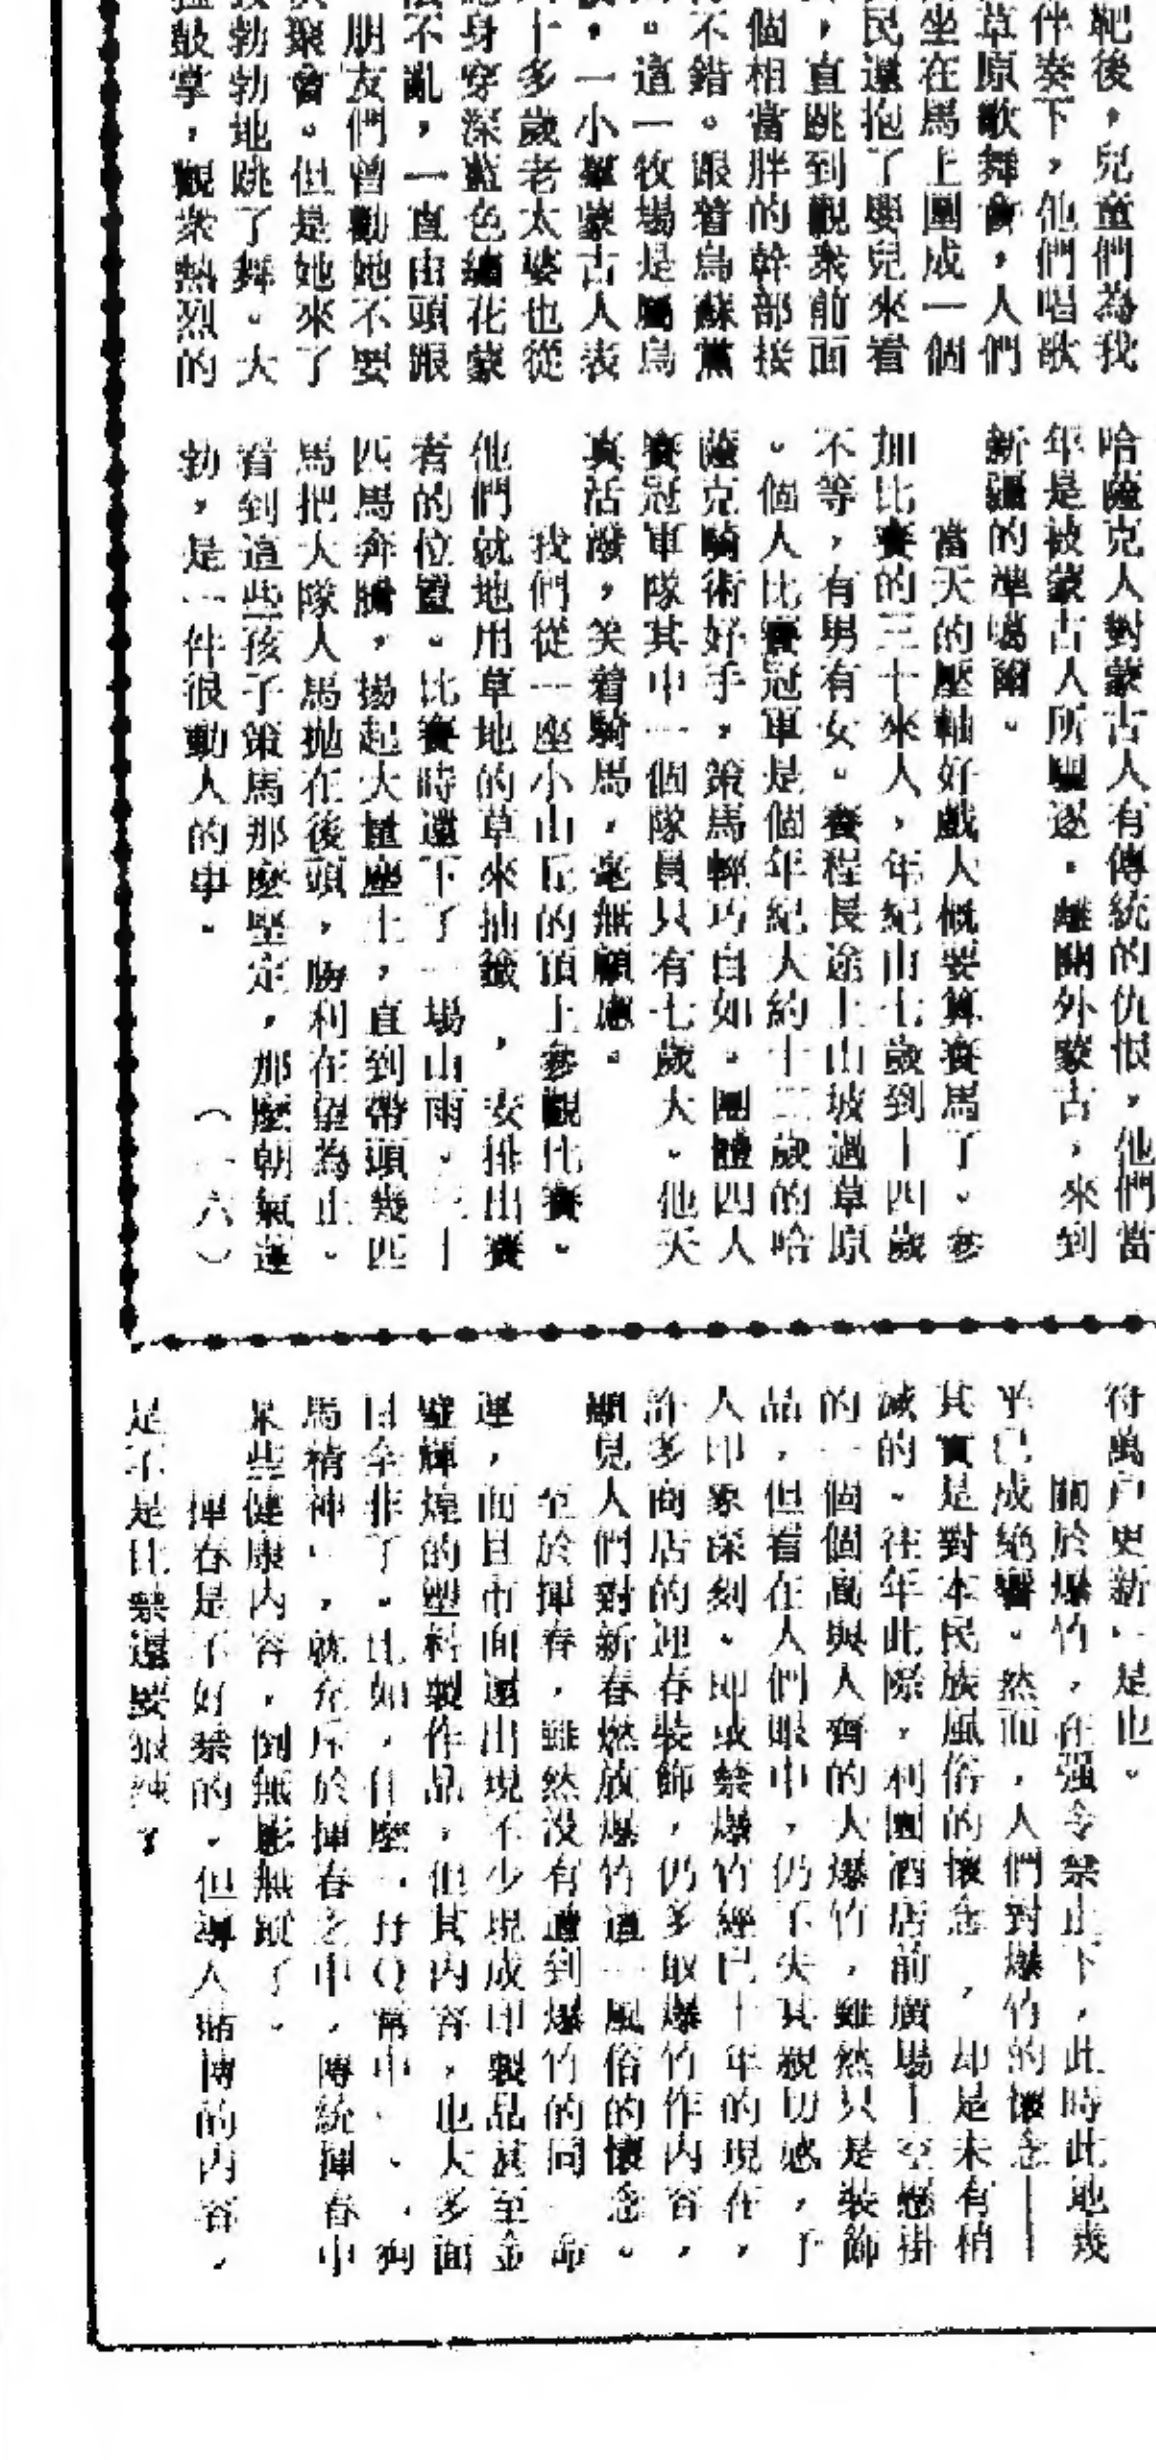 靶後，兒童們為我
伴奏下，他們唱歌
草原歌舞會，人們
坐在馬上圍成一個
民還抱了嬰兒來看
，直跳到觀衆前面
個相當胖的幹部接
不錯。跟着烏蘇黨
。這一牧場是屬烏
，一小羣蒙古人表
十多歲老太婆也從
身穿深藍色繡花蒙
不亂，一直由頭跟
朋友們曾勸她不要
聚會。但是她來了
勃勃地跳了舞。大
鼓掌，觀衆熱烈的
哈薩克人對蒙古人有傳統的仇恨，他們當
年是被蒙古人所驅逐，離開外蒙古，來到
新疆的準噶爾。
當天的壓軸好戲大概要算賽馬了。參
加比賽的三十來人，年紀由七歲到十四歲
不等，有男有女。賽程長途上山坡過草原
。個人比賽冠軍是個年紀大約十二歲的哈
薩克騎術好手，策馬輕巧自如。團體四人
賽冠軍隊其中一個隊員只有七歲大。他天
真活潑，笑着騎馬，毫無顧慮。
我們從一座小山丘的頂上參觀比賽。
他們就地用草地的草來抽籤，安排出賽
者的位置。比賽時還下了一場山雨。三十
四馬奔騰，揚起大量塵土，直到帶頭幾匹
馬把大隊人馬拋在後頭，勝利在望為止。
看到這些孩子策馬那麼堅定，那麼朝氣蓬
勃，是一件很動人的事。　（一六）
符萬户更新」是也。
關於爆竹，在强令禁止下，此時此地幾
乎已成絶響。然而，人們對爆竹的懷念——
其實是對本民族風俗的懷念，却是未有稍
減的。往年此際，利園酒店前廣場上空懸掛
的一個個高與人齊的大爆竹，雖然只是裝飾
品，但看在人們眼中，仍不失其親切感，予
人印象深刻。即或禁爆竹經已十年的現在，
許多商店的迎春裝飾，仍多取爆竹作内容，
顯見人們對新春燃放爆竹這一風俗的懷念。
至於揮春，雖然没有遭到爆竹的同一命
運，而且市面還出現不少現成印製品甚至金
璧輝煌的塑料製作品，但其内容，也大多面
目全非了。比如，什麼「孖Q常中」、「狗
馬精神」，就充斥於揮春之中，傳統揮春中
某些健康内容，倒無影無蹤了。
揮春是不好禁的，但導人賭博的内容，
是不是比禁還要狠辣了